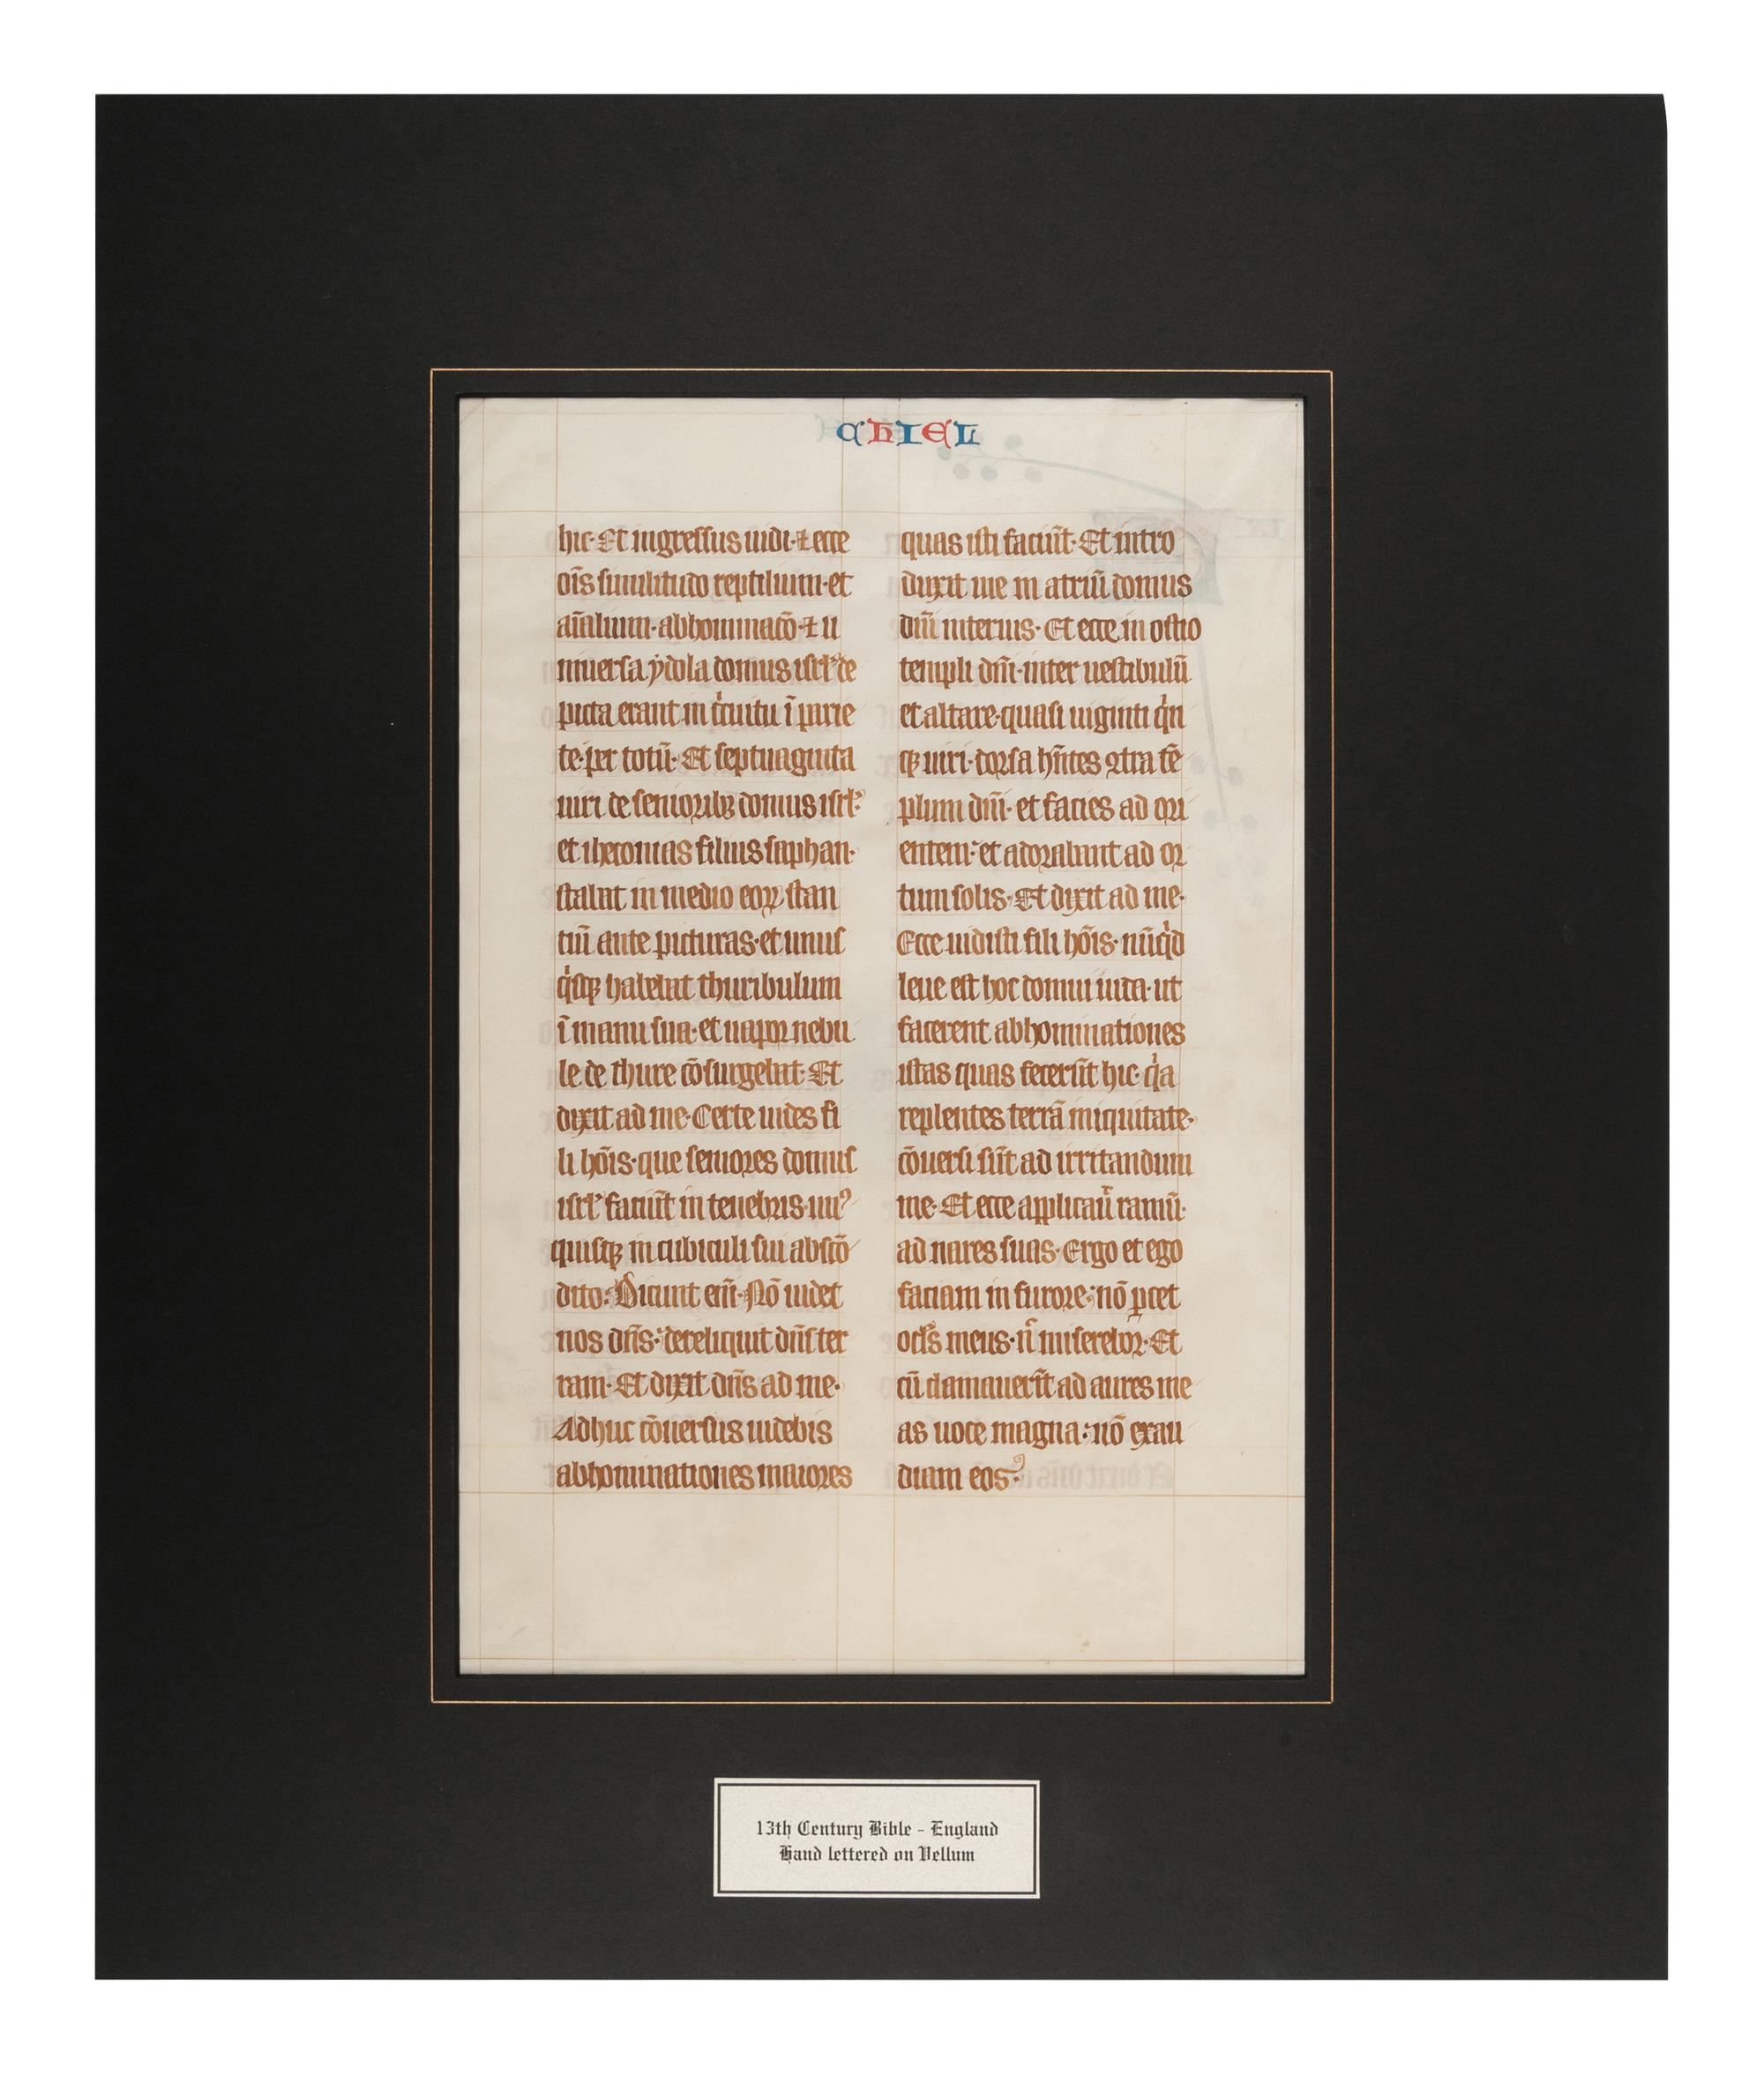 CHIEL
hic· Et ingressus uidi· ⁊ ecce
oīs similitudo reptilium· et
aīalium· abhominacō· ⁊ u
niuersa ẏdola domus isrl̓ de
picta erant in cͥcuitu ī parie
te· per totū· Et septuaginta
uiri de senioribꝫ domus isrl̓·
et iheconias filius saphan·
stabat in medio eoꝝ stan
tiū ante picturas· et unus
qͥsqꝫ habebat thuribulum
ī manu sua· et uapor nebu
le de thure cōsurgebat· Et
dixit ad me· Certe uides fi
li hōis· que seniores domus
isrl̓ faciūt in tenebris· unꝰ
quisqꝫ in cubiculi sui abscō
dito· Dicunt eni̅· Nō uidet
nos dn̄s· dereliquit dn̄s ter
ram· Et dixit dn̄s ad me·
Adhuc cōuersus uidebis
abhominationes maiores
quas isti faciūt· Et intro
duxit me in atriū domus
dn̄i interius· Et ecce in ostio
templi dn̄i· inter uestibulū
et altare· quasi uiginti qͥn
qꝫ uiri· dorsa hn̄tes ꝯtra tē
plum dn̄i· et facies ad ori
entem· et adorabant ad or
tum solis· Et dixit ad me·
Ecce uidisti fili hōis· nūqͥd
leue est hoc domui iuda· ut
facerent abhominationes
istas quas fecerūt hic· qͥa
replentes terrā iniquitate·
cōuersi sūt ad irritandum
me· Et ecce applicāt ramū·
ad nares suas· Ergo et ego
faciam in furore· nō ꝑcet
ocl̓s meus· n̄ miserebor· Et
cū clamauerīt ad aures me
as uoce magna· nō exau
diam eos·
13th Century Bible - England
Hand lettered on Vellum